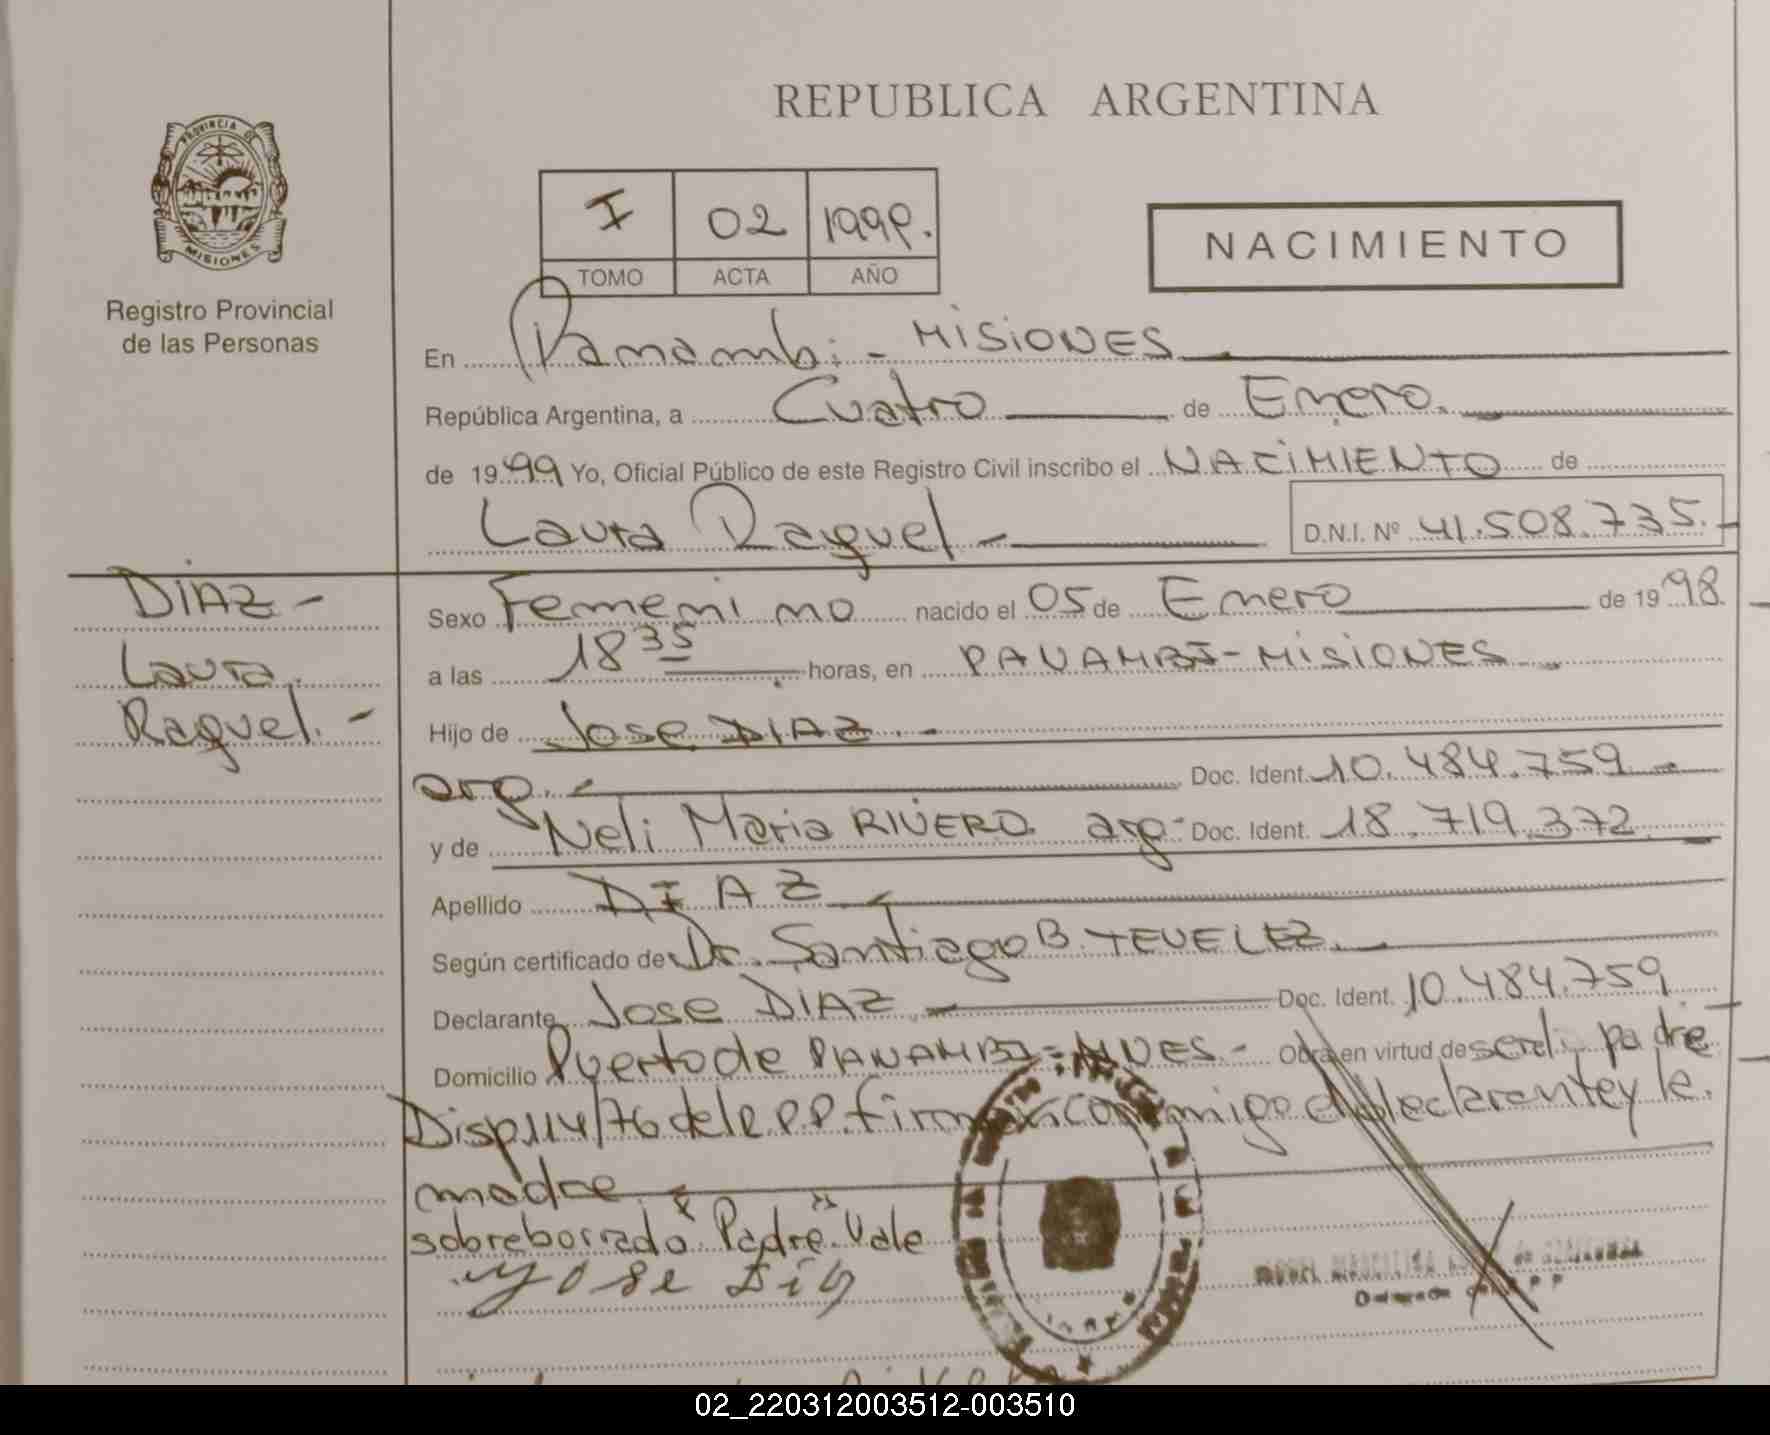 REPUBLICA ARGENTINA
PROVINCIA DE
MISIONES
Registro Provincial
de las Personas
I 02 1999.
TOMO ACTA AÑO
NACIMIENTO
En Panambi - MISIONES
República Argentina, a Cuatro de Enero.
de 1999 Yo, Oficial Público de este Registro Civil inscribo el NACIMIENTO de
Laura Raquel - D.N.I. Nº 41.508.735.-
DIAZ -
Laura
Raquel. -
Sexo Femenino nacido el 05 de Enero de 1998.
a las 18 35 horas, en PANAMBI - MISIONES
Hijo de Jose DIAZ. -
arg. - Doc. Ident. 10.484.759 -
y de Neli Maria RIVERO arg. Doc. Ident. 18.719.372
Apellido DIAZ
Según certificado de Dr. Santiago B. TEVELEZ.
Declarante Jose DIAZ - Doc. Ident. 10.484.759
Domicilio Puerto de PANAMBI - MNES. - Obra en virtud de ser el padre
Disp. 114/76 del R.P.P. firman conmigo el declarante y la
madre.
sobreborrado "Padre" Vale
Jose Dia
02_220312003512-003510